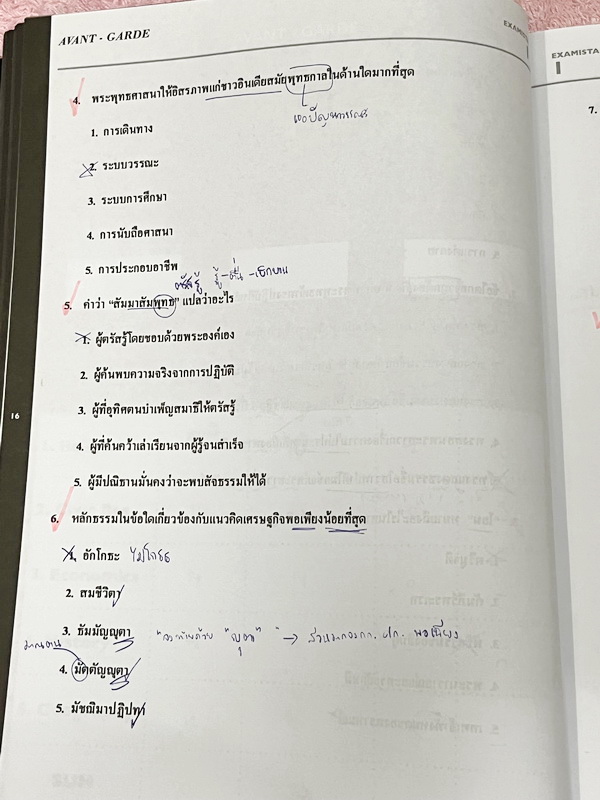 AVANT - GARDE
EXAMISTA
I
4. พระพุทธศาสนาให้อิสรภาพแก่ชาวอินเดียสมัยพุทธกาลในด้านใดมากที่สุด
1. การเดินทาง
2. ระบบวรรณะ
3. ระบบการศึกษา
4. การนับถือศาสนา
5. การประกอบอาชีพ
ตรัสรู้ รู้-ตื่น-เบิกบาน
5. คำว่า “สัมมาสัมพุทธ” แปลว่าอะไร
1. ผู้ตรัสรู้โดยชอบด้วยพระองค์เอง
2. ผู้ค้นพบความจริงจากการปฏิบัติ
3. ผู้ที่อุทิศตนบำเพ็ญสมาธิให้ตรัสรู้
4. ผู้ที่ค้นคว้าเล่าเรียนจากผู้รู้จนสำเร็จ
5. ผู้มีปณิธานมั่นคงว่าจะพบสัจธรรมให้ได้
16
6. หลักธรรมในข้อใดเกี่ยวข้องกับแนวคิดเศรษฐกิจพอเพียงน้อยที่สุด
1. อักโกธะ ไม่โกรธ
2. สมชีวิตา
3. ธัมมัญญุตา "ลงท้ายด้วย "ญุตา" →
4. มัตตัญญุตา
5. มัชฌิมาปฏิปทา
EXAMISTA
I
7.